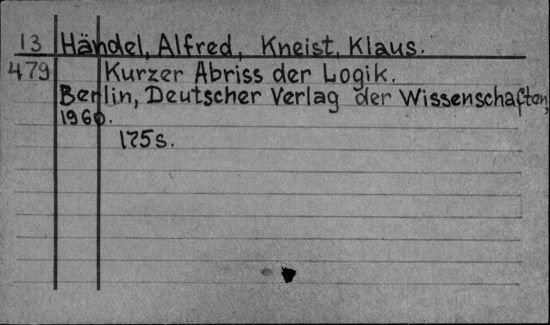 13 Händel, Alfred, Kneist, Klaus.
479 Kurzer Abriss der Logik.
Berlin, Deutscher Verlag der Wissenschaften,
1960.
175 s.